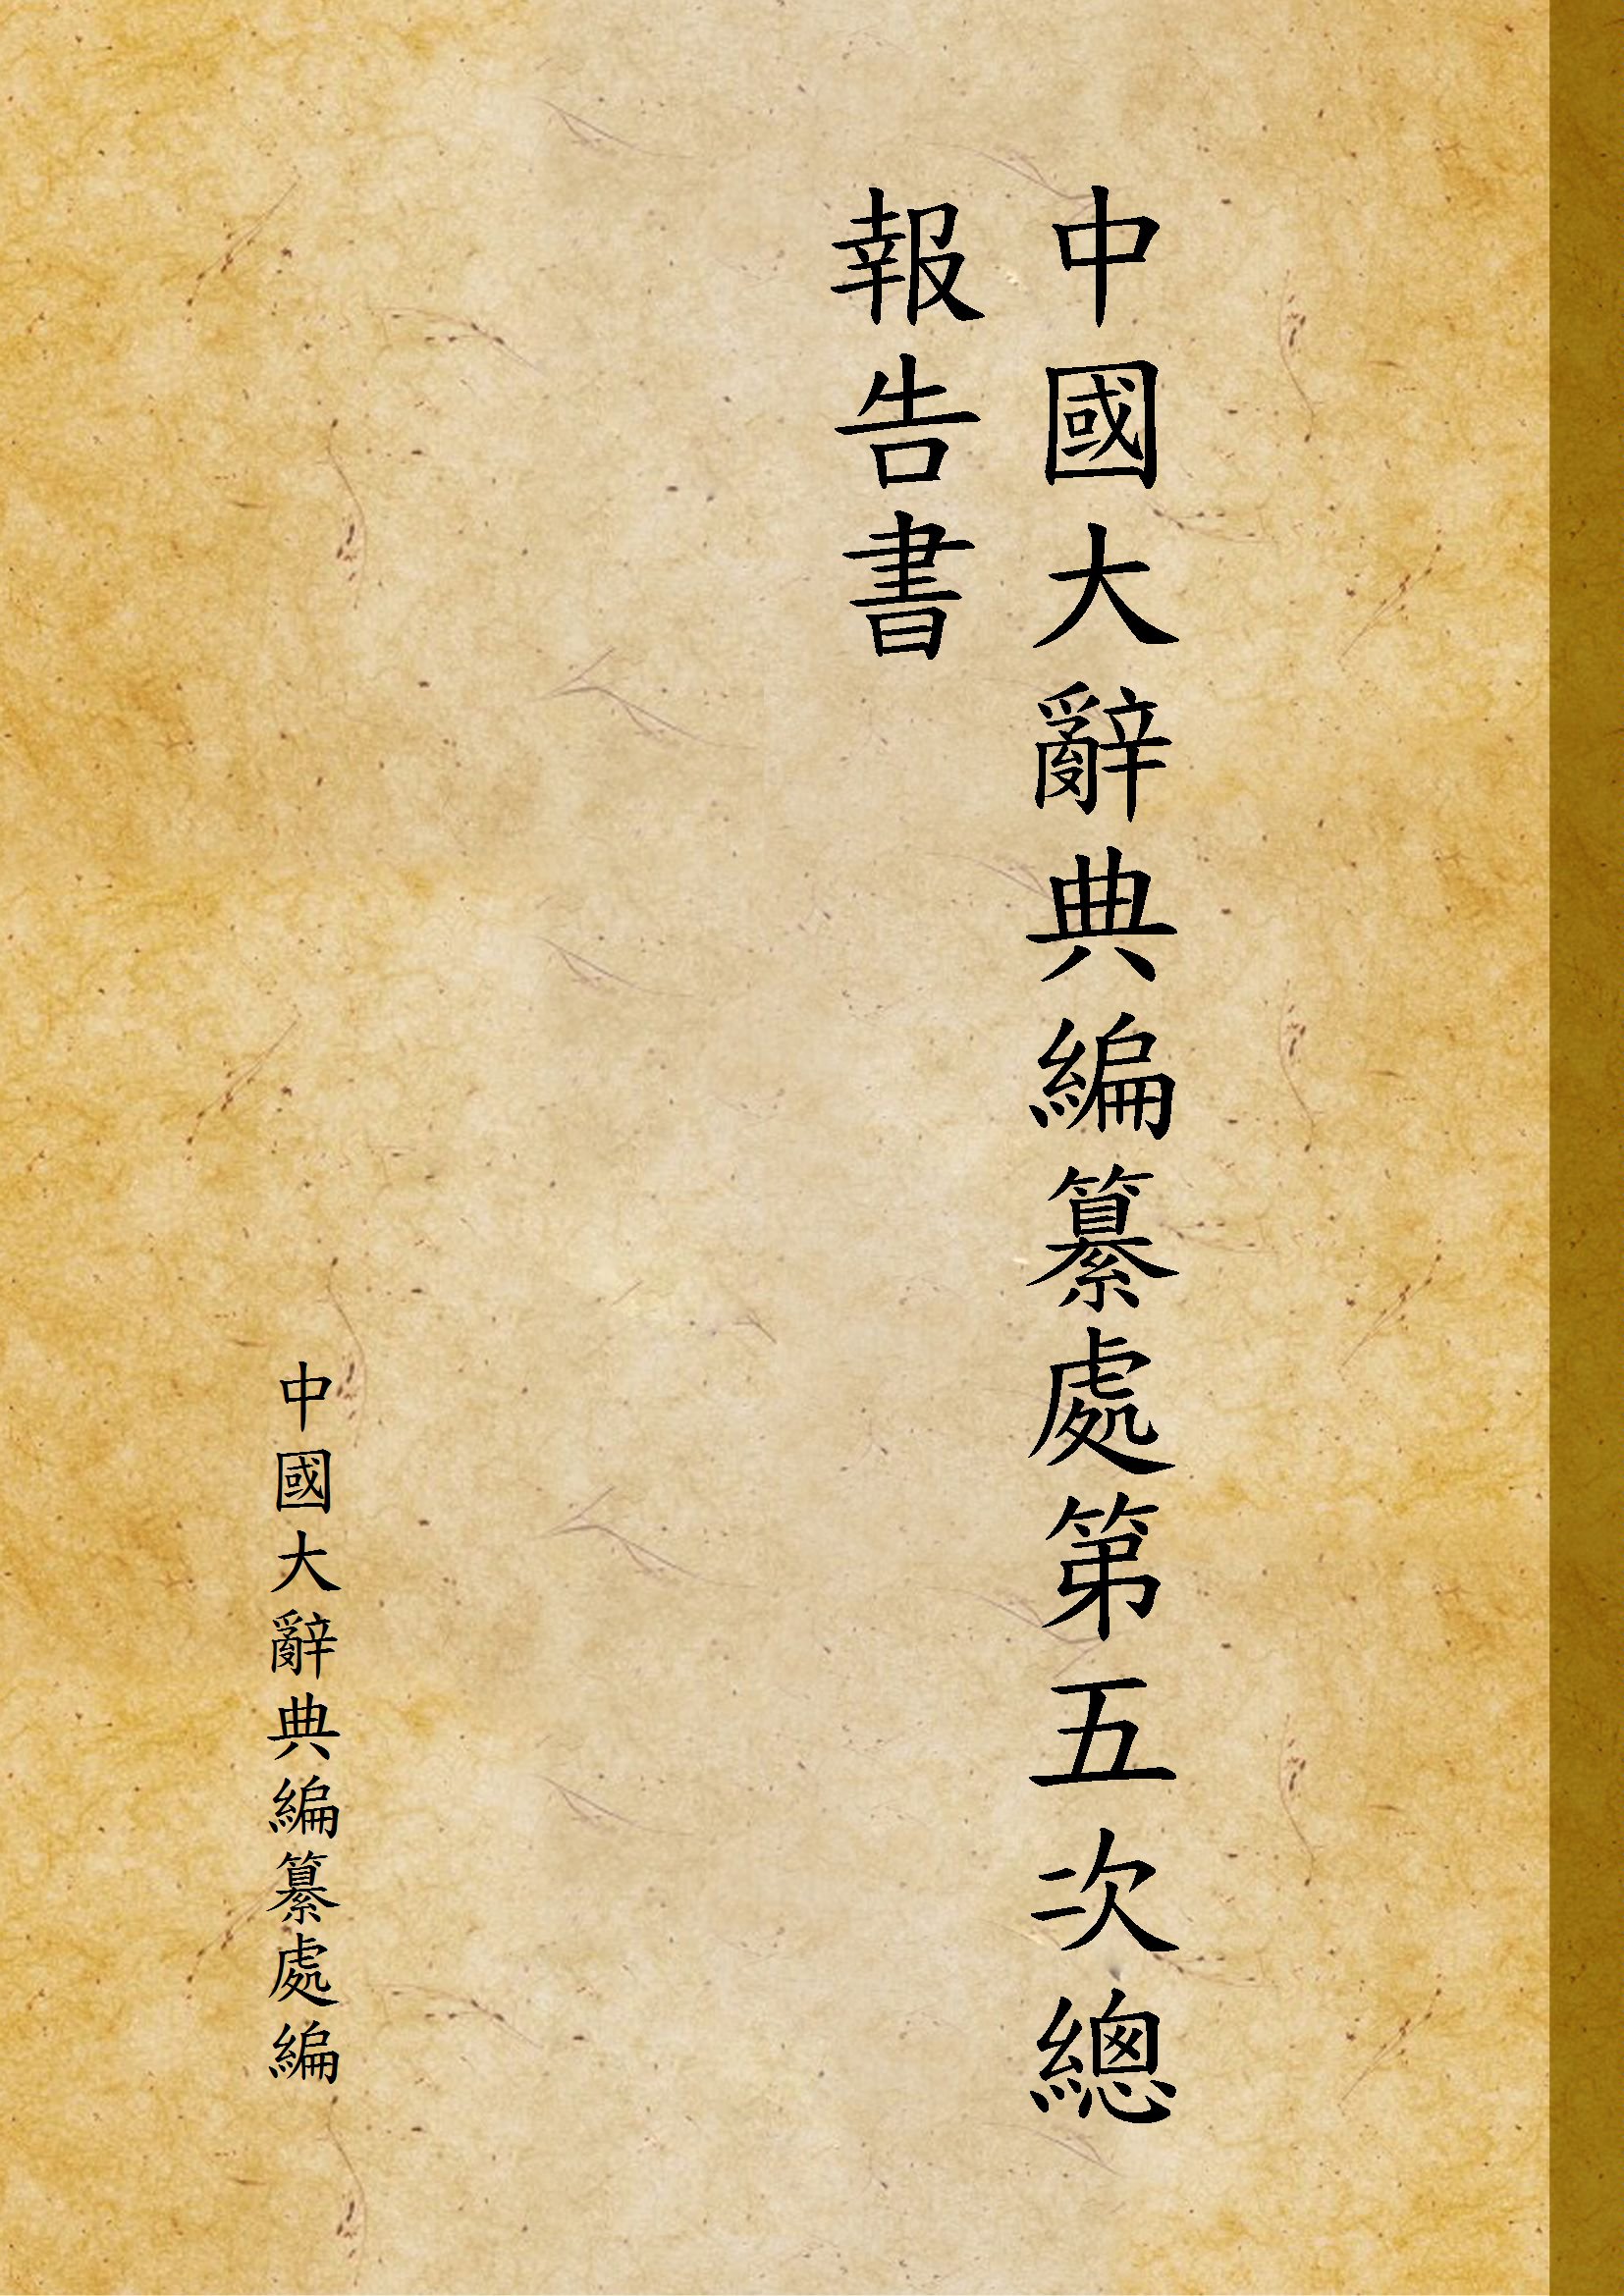 中國大辭典編纂處第五次總
報告書
中國大辭典編纂處編